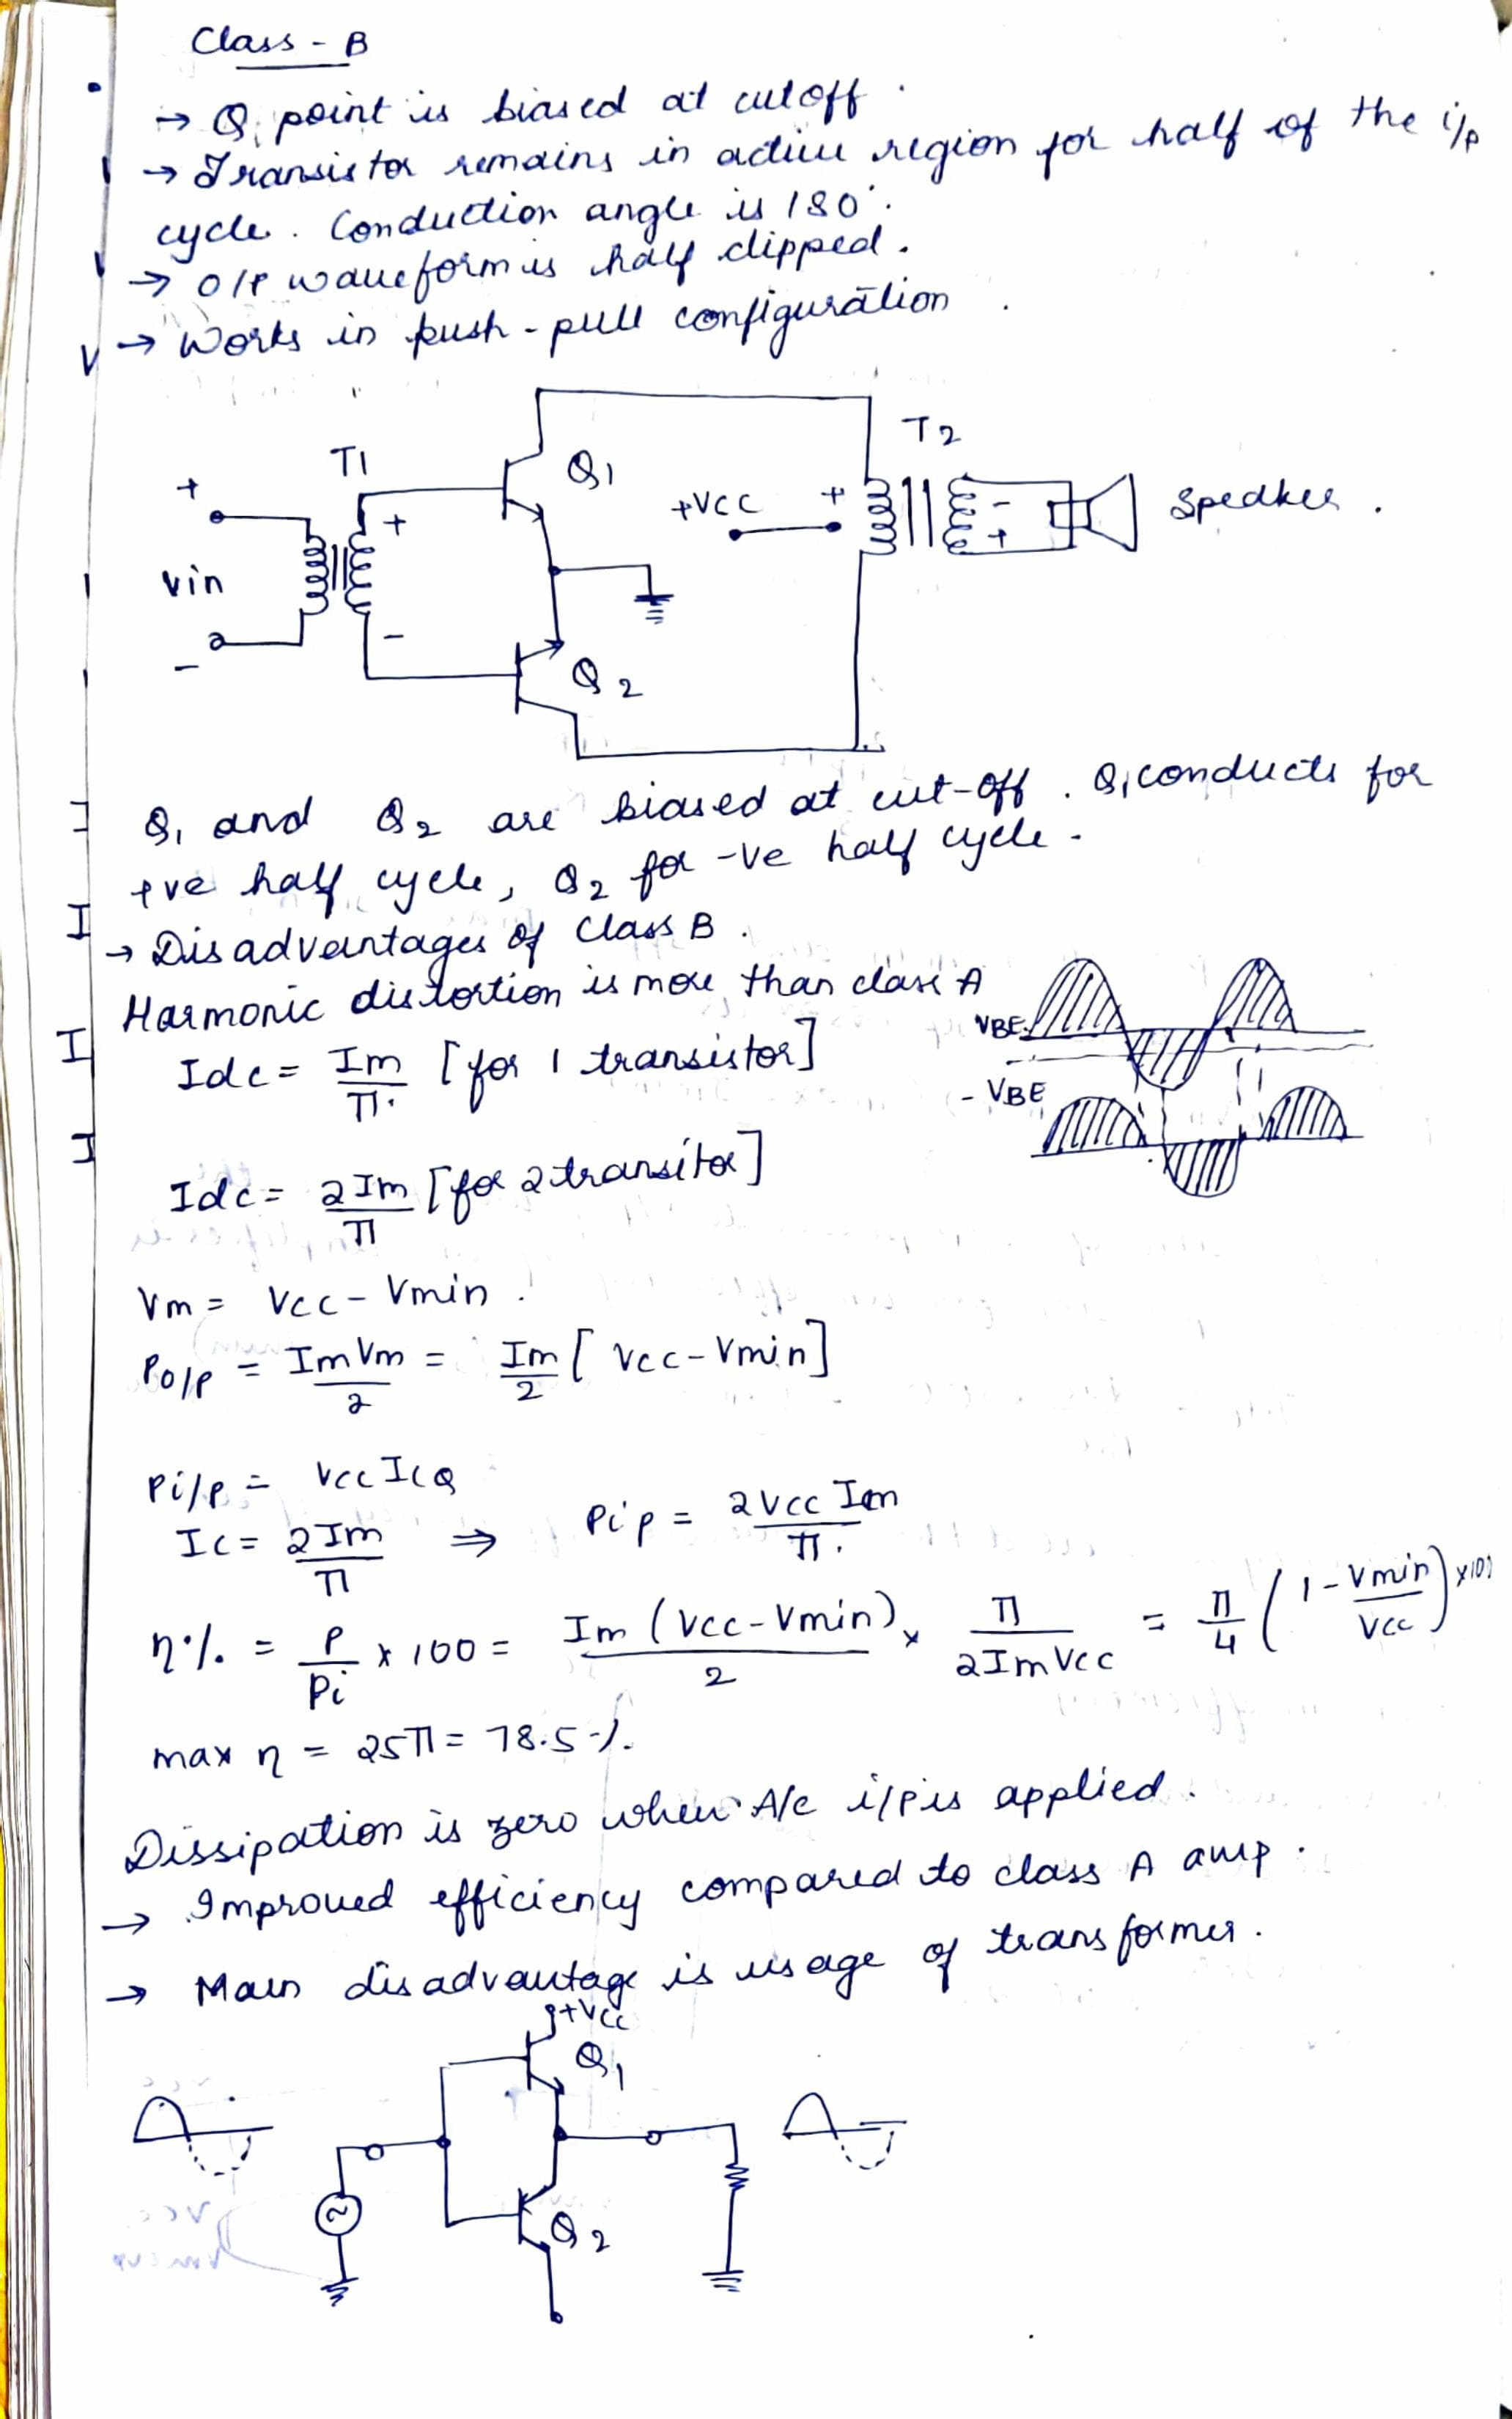 Class - B
→ Q. point is biased at cutoff.
→ Transistor remains in active region for half of the i/p
cycle. Conduction angle is 180°.
→ O/P waveform is half clipped.
→ Works in push-pull configuration
T1
Q1
T2
+
+
+VCC
+
-
+
Speaker.
Vin
-
-
Q2
Q1 and Q2 are biased at cut-off. Q1 conducts for
+ve half cycle, Q2 for -ve half cycle.
→ Disadvantages of Class B.
Harmonic distortion is more than class A
VBE
Idc = Im/π [for 1 transistor]
- VBE
Idc = 2Im/π [for 2 transitor]
Vm = Vcc - Vmin.
Po/p = ImVm/2 = Im/2 [Vcc-Vmin]
Pi/p = Vcc ICQ
Ic = 2Im/π ⇒ Pip = 2Vcc Im/π.
η% = P/Pi x 100 = Im (Vcc-Vmin)/2 x π/2ImVcc = π/4 (1 - Vmin/Vcc) x100
max η = 25π = 78.5%.
Dissipation is zero when A/c i/p is applied.
→ Improved efficiency compared to class A amp.
→ Main disadvantage is usage of transformer.
+Vcc
Q1
Q2